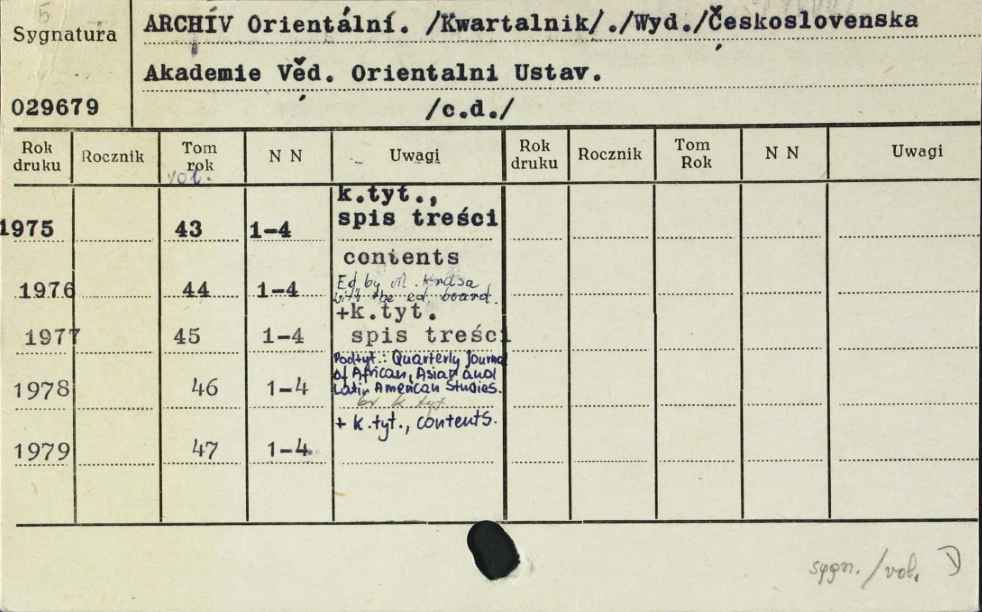 5
Sygnatura
029679
ARCHÍV Orientální. /Kwartalnik/./Wyd./Československa
Akademie Věd. Orientalni Ustav.
/c.d./
Rok druku Rocznik Tom rok N N Uwagi Rok druku Rocznik Tom Rok N N Uwagi
vol.
k.tyt.,
1975 43 1-4 spis treści
contents
1976 44 1-4 Ed by M. Krása
with the ed. board.
+k.tyt.
1977 45 1-4 spis treści
Podtyt.: Quarterly Journal
of African, Asian and
1978 46 1-4 Latin American Studies.
br k tyt
+ k.tyt., contents.
1979 47 1-4
sygn./vol.